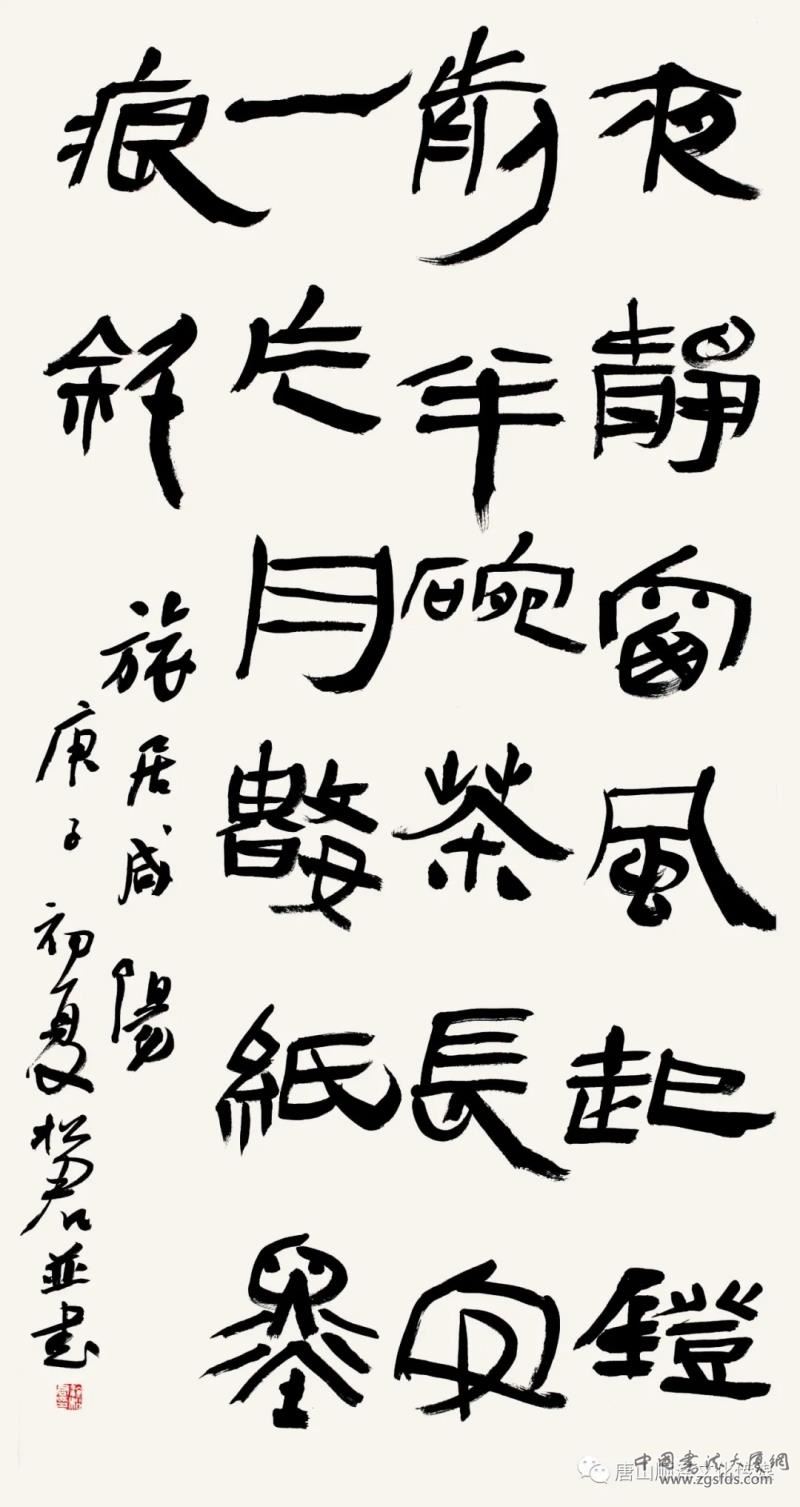 夜靜窗風起鐙
前半碗茶長安
一片月數紙墨
痕斜
旅居咸陽
庚子初夏松君並書
唐山文化传媒
中國書法大厦網
www.zgsfds.com